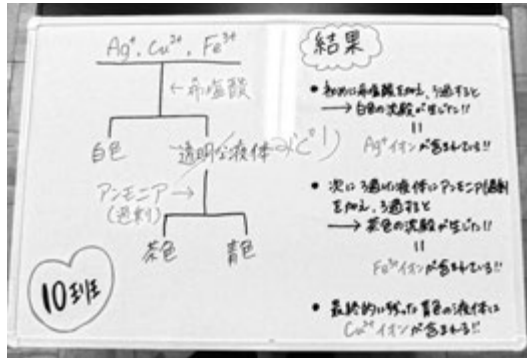 Ag⁺, Cu²⁺, Fe³⁺
←希塩酸
白色
透明な液体
アンモニア→
(過剰)
茶色
青色
10班
結果
• 初めに希塩酸を加え、ろ過すると
→白色の沈殿が生じた!!
||
Ag⁺イオンが含まれている!!
• 次にろ過した液体にアンモニア(過剰)
を加え、ろ過すると
→茶色の沈殿が生じた!!
||
Fe³⁺イオンが含まれている!!
• 最終的に残った青色の液体に
Cu²⁺イオンが含まれる!!